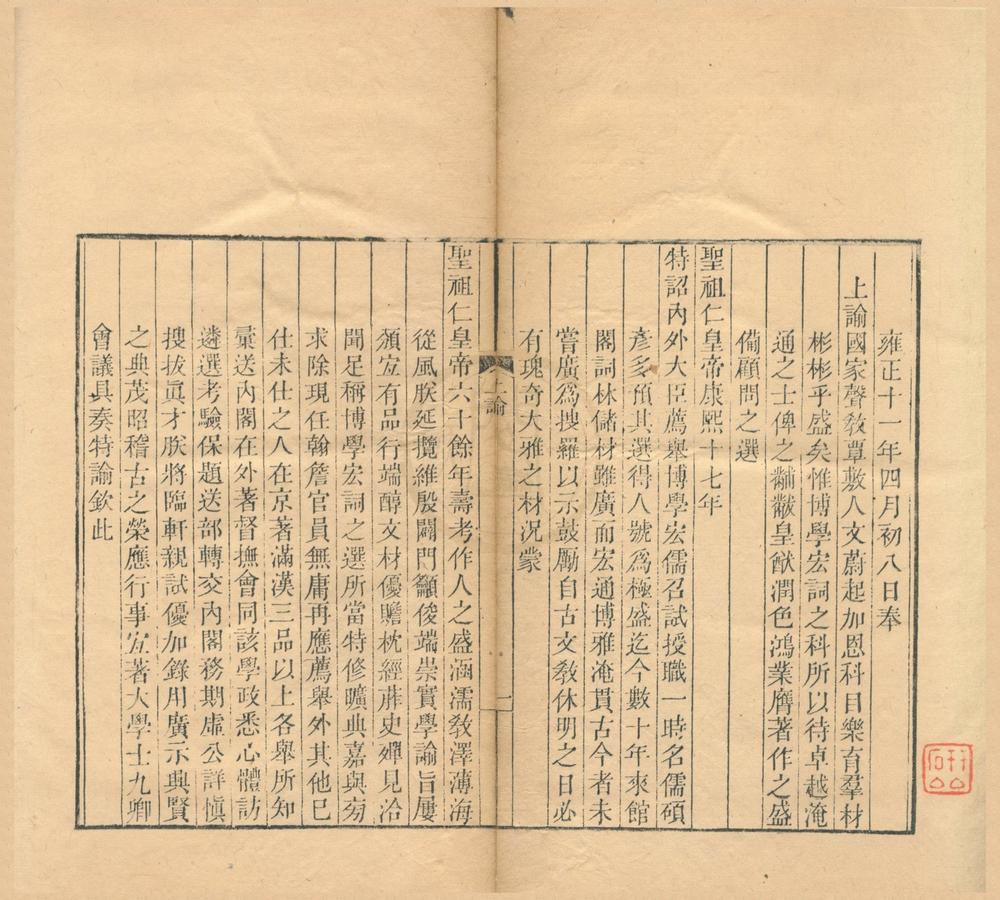 雍正十一年四月初八日奉
上諭國家聲教覃敷人文蔚起加恩科目樂育羣材
彬彬乎盛矣惟博學宏詞之科所以待卓越淹
通之士俾之黼黻皇猷潤色鴻業膺著作之盛
備顧問之選
聖祖仁皇帝康熙十七年
特詔內外大臣薦舉博學宏儒召試授職一時名儒碩
彥多預其選得人號為極盛迄今數十年來館
閣詞林儲材雖廣而宏通博雅淹貫古今者未
嘗廣為搜羅以示鼓勵自古文教休明之日必
有瑰奇大雅之材況蒙
上諭
一
聖祖仁皇帝六十餘年壽考作人之盛涵濡教澤薄海
從風朕延攬維殷闢門籲俊端崇實學諭旨屢
頒宜有品行端醇文材優贍枕經葄史殫見洽
聞足稱博學宏詞之選所當特修曠典嘉與旁
求除現任翰詹官員無庸再應薦舉外其他已
仕未仕之人在京著滿漢三品以上各舉所知
彙送內閣在外著督撫會同該學政悉心體訪
遴選考驗保題送部轉交內閣務期虛公詳慎
搜拔眞才朕將臨軒親試優加錄用廣示興賢
之典茂昭稽古之榮應行事宜著大學士九卿
會議具奏特諭欽此